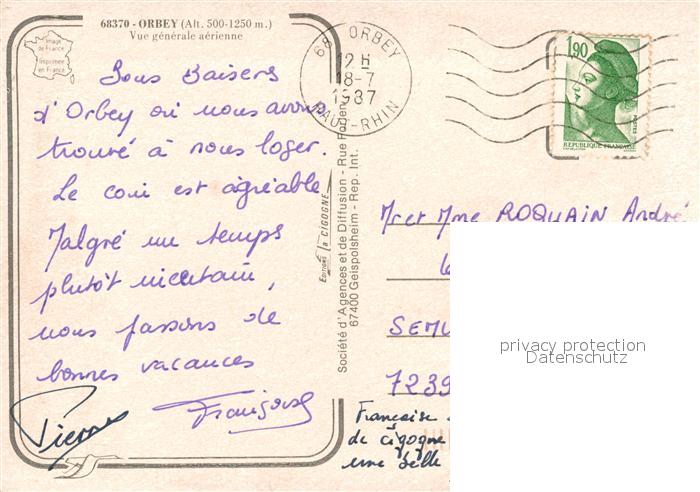 68370 - ORBEY (Alt. 500-1250 m.)
Vue générale aérienne
Image de France
Imprimée en France
68 ORBEY
12 H
18-7
1987
HAUT-RHIN
1,90
POSTES
REPUBLIQUE FRANÇAISE
Baisers
d'Orbey où nous avons
trouvé à nous loger.
Le coin est agréable
Malgré un temps
plutôt incertain,
nous passons de
bonnes vacances
Françoise
Pierre
Editions la CIGOGNE
Société d'Agences et de Diffusion - Rue
67400 Geispolsheim - Rep. Int.
Mr et Mme ROQUAIN André
6
SEMU
7239
Françoise
de cigogne
une belle
privacy protection
Datenschutz